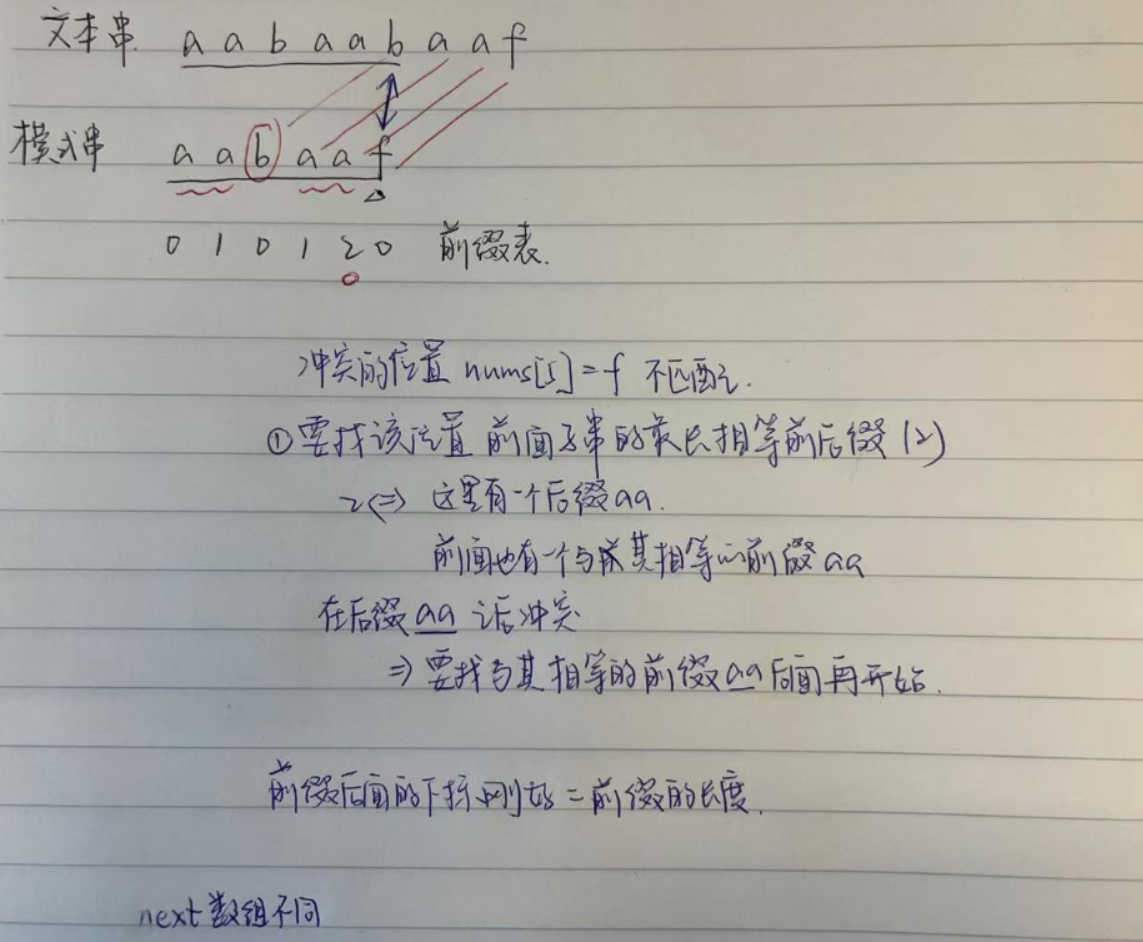 文本串 a a b a a b a a f
模式串 a a b a a f
0 1 0 1 2 0 前缀表.
冲突的位置 nums[5]=f 不匹配.
①要找该位置 前面子串的最长相等前后缀 (2)
2<=> 这里有一个后缀aa.
前面也有一个与其相等的前缀aa
在后缀aa 之后冲突
=> 要找与其相等的前缀aa后面再开始.
前缀后面的下标刚好=前缀的长度.
next数组不同